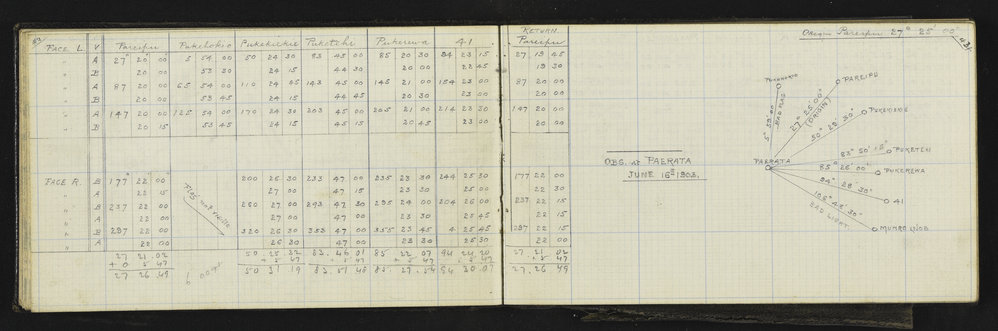 RETURN
Origin Pareipu 27° 25' 00"
Face L. V Pareipu Pukehokio Pukekiekie Puketchi Pukerewa 41 Pareipu
A 27° 20' 00" 5 54 00 50 24 30 83 45 00 85 20 30 94 23 15 27 19 45
B 20 00 53 30 24 15 44 30 20 00 22 45 19 30
A 87 20 00 65 54 00 110 24 45 143 45 00 145 21 00 154 23 00 87 20 00
B 20 00 53 45 24 15 44 45 20 30 23 00 20 00
A 147 20 00 125 54 00 170 24 30 203 45 00 205 21 00 214 23 30 147 20 00
B 20 15 53 45 24 15 45 15 20 45 23 00 20 00
Face R. B 177° 22' 00" 200 26 30 233 47 00 235 23 30 244 25 30 177 22 00
A 22 15 27 00 47 15 23 30 25 00 22 30
B 237 22 00 260 27 00 293 47 30 295 24 00 304 26 00 237 22 15
A 22 00 27 00 47 00 23 30 25 45 22 15
B 297 22 00 320 26 30 353 47 00 355 23 45 4 25 45 297 22 15
A 22 00 26 30 47 00 23 30 25 30 22 00
Flag not visible
27 21 02 50 25 32 83 46 01 85 22 07 94 24 20 27 21 02
+ 0 5 47 + 5 47 + 5 47 + 5 47 + 5 47 + 5 47
27 26 49 50 31 19 83 51 48 85 27 54 94 30 07 27 26 49
OBS. at PAERATA
JUNE 16th 1903.
PAREIPU
27° 25' 00"
(ORIGIN)
BAD FLAG
PUKEKIEKIE
50° 29' 30"
83° 50' 15" PUKETCHI
PAERATA
85° 26' 00" PUKEREWA
94° 28' 30" 41
BAD LIGHT
MUNRO KNOB